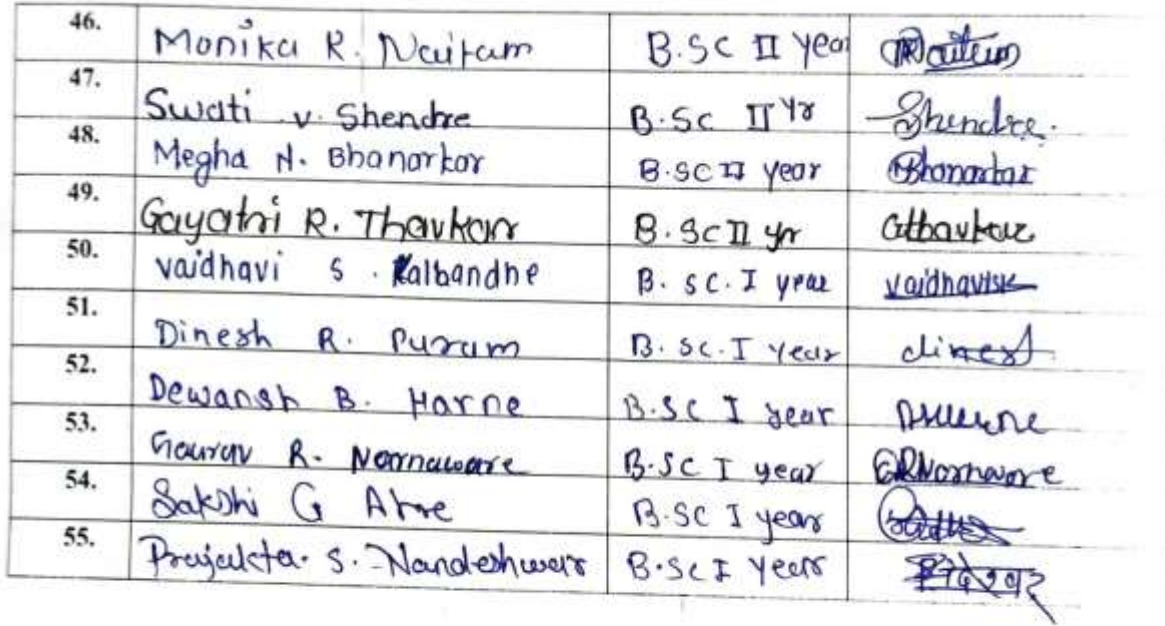 46. Monika R. Naitam B.Sc II year Naitam
47. Swati v. Shendre B.Sc II Yr Shendre.
48. Megha N. Bhanarkar B.SC II year Bhanarkar
49. Gayatri R. Thavkar B.Sc II yr GThavkar
50. vaidhavi S. Kalbandhe B. sc. I year vaidhavisk
51. Dinesh R. Puram B. Sc. I Year dinesh
52. Dewansh B. Harne B.Sc I year
53. Gaurav R. Narnaware B.Sc I year GRNarnaware
54. Sakshi G Atre B.SC I year
55. Prajakta. S. Nandeshwar B.Sc I Year